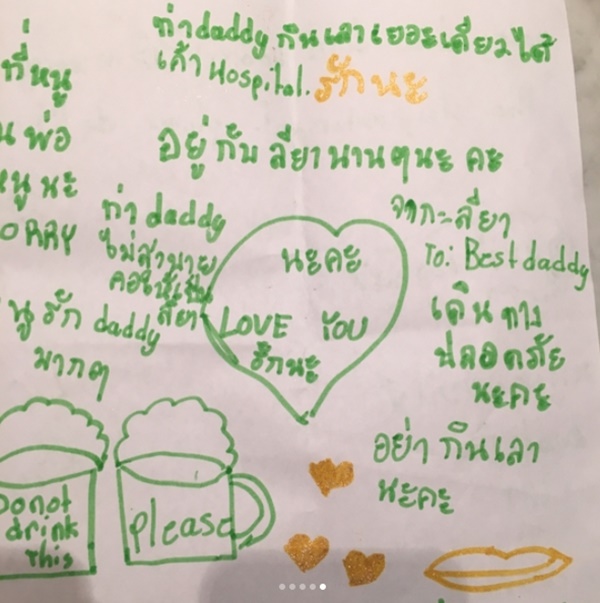 ถ้า daddy กินเลาเยอะเดี๋ยวได้
เค้า Hospital. รักนะ
ที่หนู
พ่อ
อยู่กับ ลียานานๆนะ คะ
หนู นะ
ORRY
ถ้า daddy
ไม่สาบาย
ลียา
นู รัก daddy
มากๆ
นะคะ
LOVE YOU
รักนะ
จากะลียา
To: Best daddy
เดินทาง
ปลอดภัย
นะคะ
อย่า กินเลา
นะคะ
Donot
drink
This
please